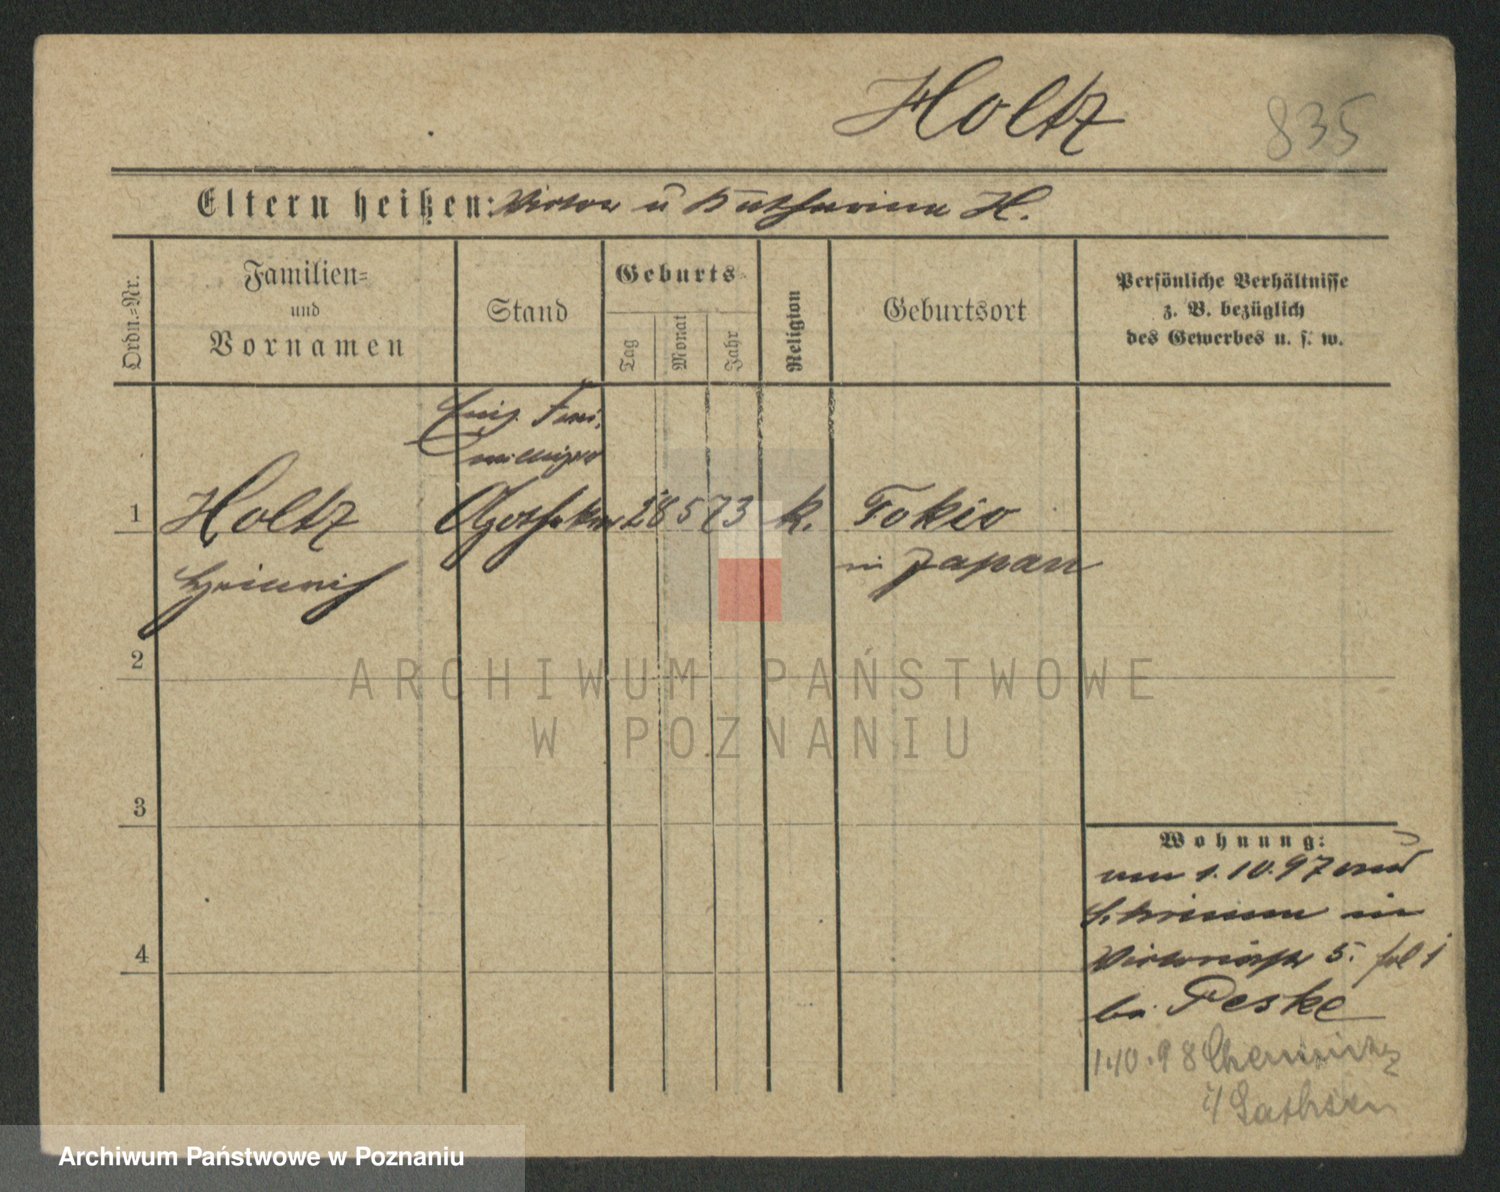 Holtz 835
Eltern heißen: Victor u Katharina H.
Ordn.-Nr.
Familien-
und
Vornamen
Stand
Geburts-
Tag
Monat
Jahr
Religion
Geburtsort
Persönliche Verhältnisse
z. B. bezüglich
des Gewerbes u. s. w.
Einj. Frei
williger
1 Holtz Apotheker 28 5 73 k. Tokio
Heinrich in Japan
2
3
4
Wohnung:
1.10.97
in
Victoriastr 5.
bei Peske
1.10.98 Chemnitz
i/ Sachsen
ARCHIWUM PAŃSTWOWE
W POZNANIU
Archiwum Państwowe w Poznaniu